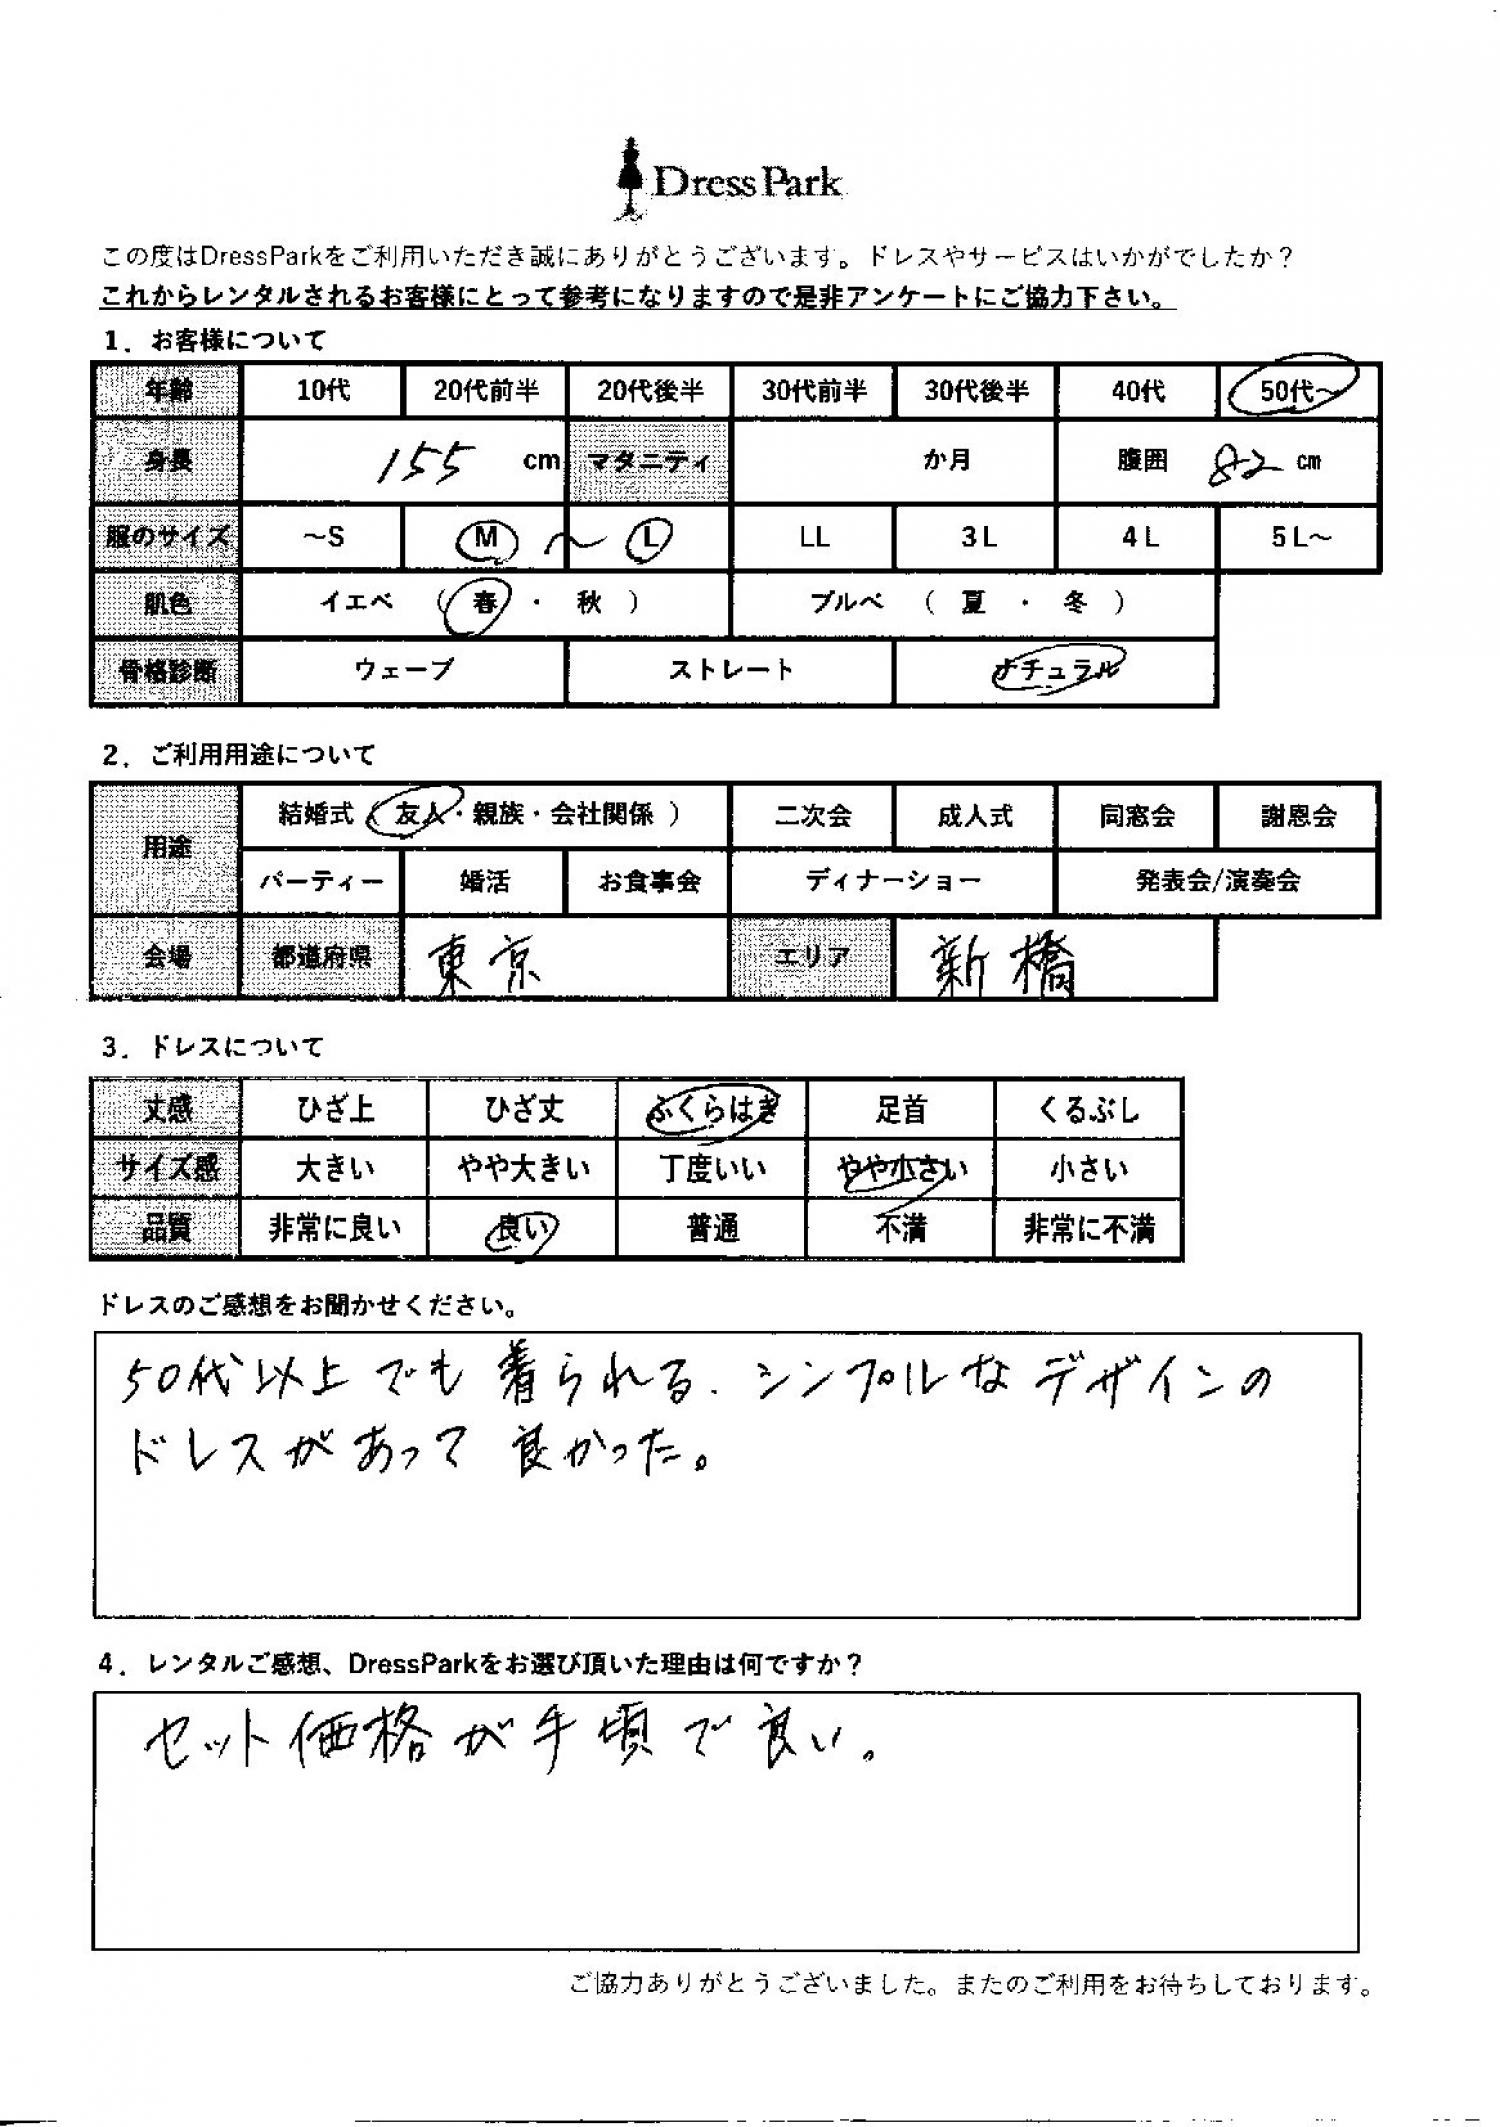 DressPark
この度はDressParkをご利用いただき誠にありがとうございます。ドレスやサービスはいかがでしたか？
これからレンタルされるお客様にとって参考になりますので是非アンケートにご協力下さい。
1．お客様について
年齢 10代 20代前半 20代後半 30代前半 30代後半 40代 50代～
身長 155 cm マタニティ か月 腹囲 82 cm
服のサイズ ～S M ～ L LL 3L 4L 5L～
肌色 イエベ （ 春 ・ 秋 ） ブルベ （ 夏 ・ 冬 ）
骨格診断 ウェーブ ストレート ナチュラル
2．ご利用用途について
用途 結婚式（ 友人・親族・会社関係 ） 二次会 成人式 同窓会 謝恩会
パーティー 婚活 お食事会 ディナーショー 発表会/演奏会
会場 都道府県 東京 エリア 新橋
3．ドレスについて
丈感 ひざ上 ひざ丈 ふくらはぎ 足首 くるぶし
サイズ感 大きい やや大きい 丁度いい やや小さい 小さい
品質 非常に良い 良い 普通 不満 非常に不満
ドレスのご感想をお聞かせください。
50代以上でも着られる、シンプルなデザインの
ドレスがあって良かった。
4．レンタルご感想、DressParkをお選び頂いた理由は何ですか？
セット価格が手頃で良い。
ご協力ありがとうございました。またのご利用をお待ちしております。